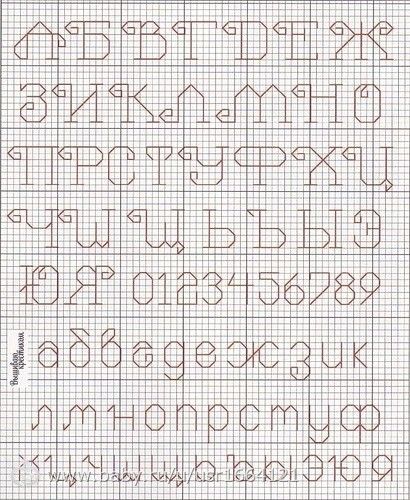 А Б В Г Д Е Ж
З И К Л М Н О
П Р С Т У Ф Х Ц
Ч Ш Щ Ь Ъ Ы Э
Ю Я 0123456789
а б в г д е ж з и к
л м н о п р с т у ф
х ц ч ш щ ь ъ ы э ю я
Вышиваю
крестиком
www.baby.ru/u/usr1664121